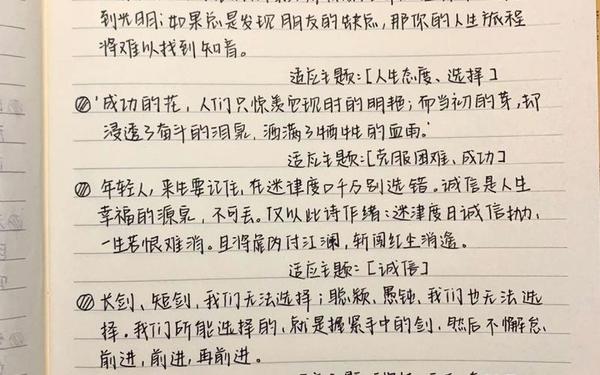 到光明；如果总是发现朋友的缺点，那你的人生旅程
将难以找到知音。
适应主题：[人生态度、选择]
成功的花，人们只惊羡她现时的明艳；而当初的芽，却
浸透了奋斗的泪泉，洒满了牺牲的血雨。
适应主题：[克服困难、成功]
年轻人，来生要记住，在迷津渡口千万别选错。诚信是人生
幸福的源泉，不可丢。仅以此诗作绪：迷津度日诚信抛，
一生苦恨难消。且将虚内付江澜，斩闯红尘消遥。
适应主题：[诚信]
长剑、短剑，我们无法选择；聪颖、愚钝，我们也无法选
择。我们所能选择的，就是握紧手中的剑，然后不懈怠，
前进，前进，再前进。